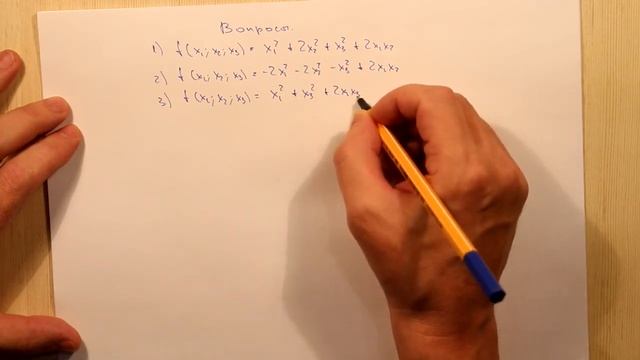 Вопросы.
1) f(x₁; x₂; x₃) = x₁² + 2x₂² + x₃² + 2x₁x₂
2) f(x₁; x₂; x₃) = -2x₁² - 2x₂² - x₃² + 2x₁x₂
3) f(x₁; x₂; x₃) = x₁² + x₃² + 2x₁x₃